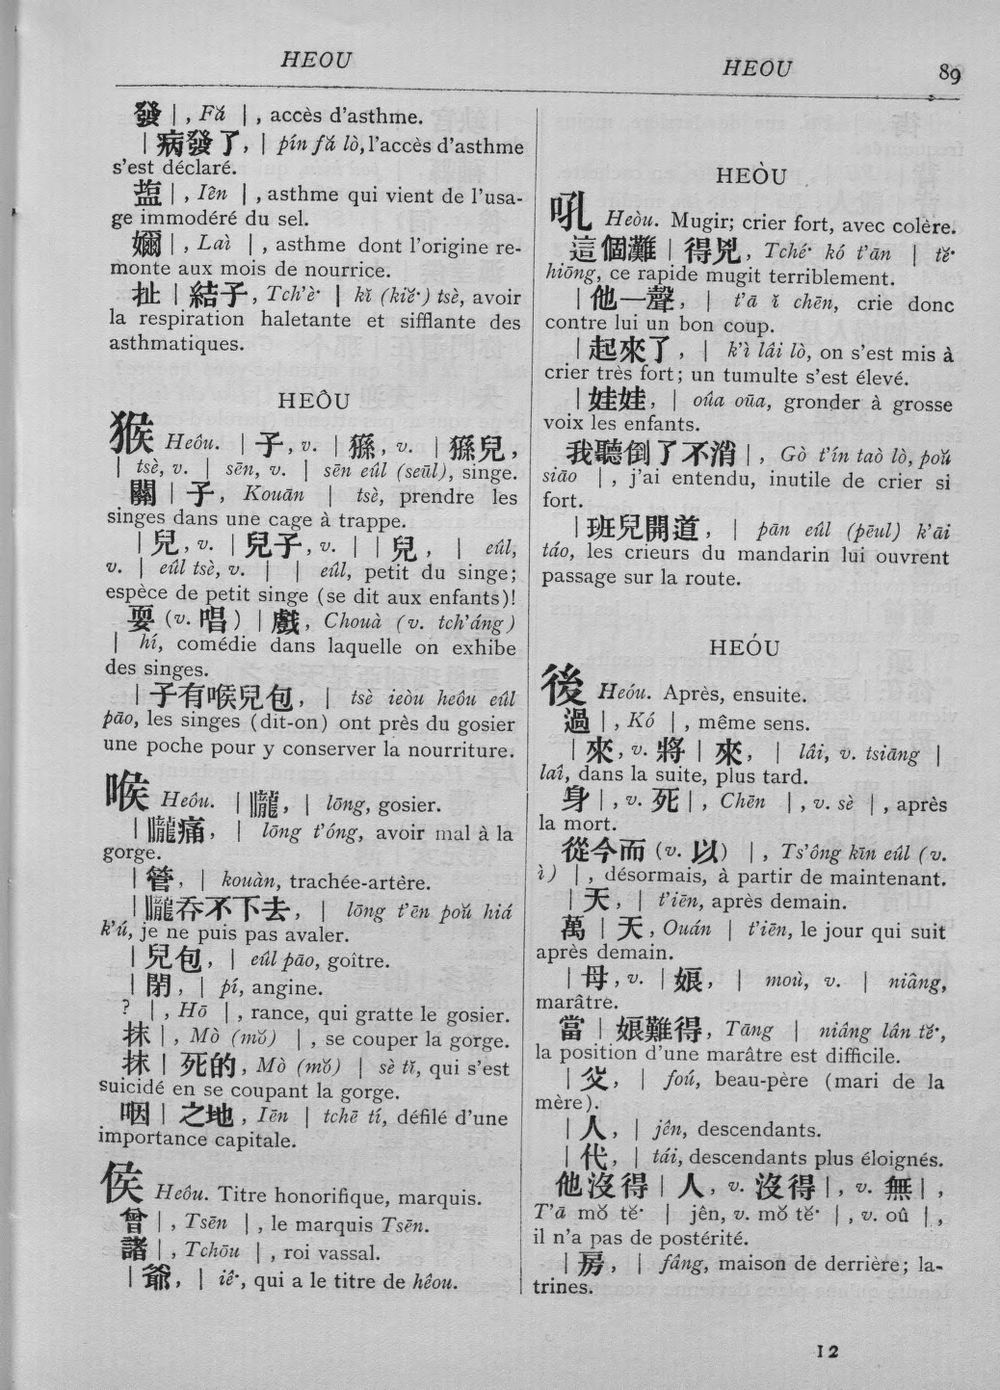 HEOU
HEOU
89
發 | , Fă | , accès d'asthme.
| 病發了, | pín fă lò, l'accès d'asthme
s'est déclaré.
塩 | , Iên | , asthme qui vient de l'usa-
ge immodéré du sel.
嬭 | , Laì | , asthme dont l'origine re-
monte aux mois de nourrice.
扯 | 結子, Tch'è· | kĭ (kiĕ·) tsè, avoir
la respiration haletante et sifflante des
asthmatiques.
HEÔU
猴 Heôu. | 子, v. | 猻, v. | 猻兒,
| tsè, v. | sēn, v. | sēn eûl (seūl), singe.
關 | 子, Kouān | tsè, prendre les
singes dans une cage à trappe.
| 兒, v. | 兒子, v. | | 兒, | eûl,
v. | eûl tsè, v. | | eûl, petit du singe;
espèce de petit singe (se dit aux enfants)!
耍 (v. 唱) | 戲, Chouà (v. tch'áng)
| hí, comédie dans laquelle on exhibe
des singes.
| 子有喉兒包, | tsè ieòu heôu eûl
pāo, les singes (dit-on) ont près du gosier
une poche pour y conserver la nourriture.
喉 Heôu. | 嚨, | lōng, gosier.
| 嚨痛, | lōng t'óng, avoir mal à la
gorge.
| 管, | kouàn, trachée-artère.
| 嚨吞不下去, | lōng t'ēn poŭ hiá
k'ú, je ne puis pas avaler.
| 兒包, | eûl pāo, goître.
| 閉, | pí, angine.
? | , Hō | , rance, qui gratte le gosier.
抹 | , Mò (mŏ) | , se couper la gorge.
抹 | 死的, Mò (mŏ) | sè tĭ, qui s'est
suicidé en se coupant la gorge.
咽 | 之地, Iēn | tchē tí, défilé d'une
importance capitale.
侯 Heôu. Titre honorifique, marquis.
曾 | , Tsēn | , le marquis Tsēn.
諸 | , Tchōu | , roi vassal.
| 爺, | iê·, qui a le titre de hêou.
HEÒU
吼 Heòu. Mugir; crier fort, avec colère.
這個灘 | 得兇, Tché· kó t'ān | tĕ·
hiōng, ce rapide mugit terriblement.
| 他一聲, | t'ā ĭ chēn, crie donc
contre lui un bon coup.
| 起來了, | k'ì lâi lò, on s'est mis à
crier très fort; un tumulte s'est élevé.
| 娃娃, | oûa oūa, gronder à grosse
voix les enfants.
我聽倒了不消 | , Gò t'ín taò lò, poŭ
siāo | , j'ai entendu, inutile de crier si
fort.
| 班兒開道, | pān eûl (pēul) k'āi
táo, les crieurs du mandarin lui ouvrent
passage sur la route.
HEÓU
後 Heóu. Après, ensuite.
過 | , Kó | , même sens.
| 來, v. 將 | 來, | lâi, v. tsiāng |
laî, dans la suite, plus tard.
身 | , v. 死 | , Chēn | , v. sè | , après
la mort.
從今而 (v. 以) | , Ts'ông kīn eûl (v.
ì) | , désormais, à partir de maintenant.
| 天, | t'iēn, après demain.
萬 | 天, Ouán | t'iēn, le jour qui suit
après demain.
| 母, v. | 娘, | moù, v. | niâng,
marâtre.
當 | 娘難得, Tāng | niâng lân tĕ·,
la position d'une marâtre est difficile.
| 父, | foú, beau-père (mari de la
mère).
| 人, | jên, descendants.
| 代, | tái, descendants plus éloignés.
他沒得 | 人, v. 沒得 | , v. 無 | ,
T'ā mŏ tĕ· | jên, v. mŏ tĕ· | , v. oû | ,
il n'a pas de postérité.
| 房, | fâng, maison de derrière; la-
trines.
12